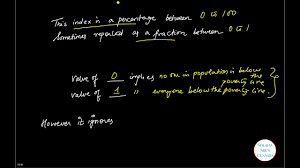 This index is a percentage between 0 to 100
Sometimes reported as a fraction between 0 to 1
value of 0 implies no one in population is below the poverty line
value of 1 " everyone below the poverty line.
However it ignores